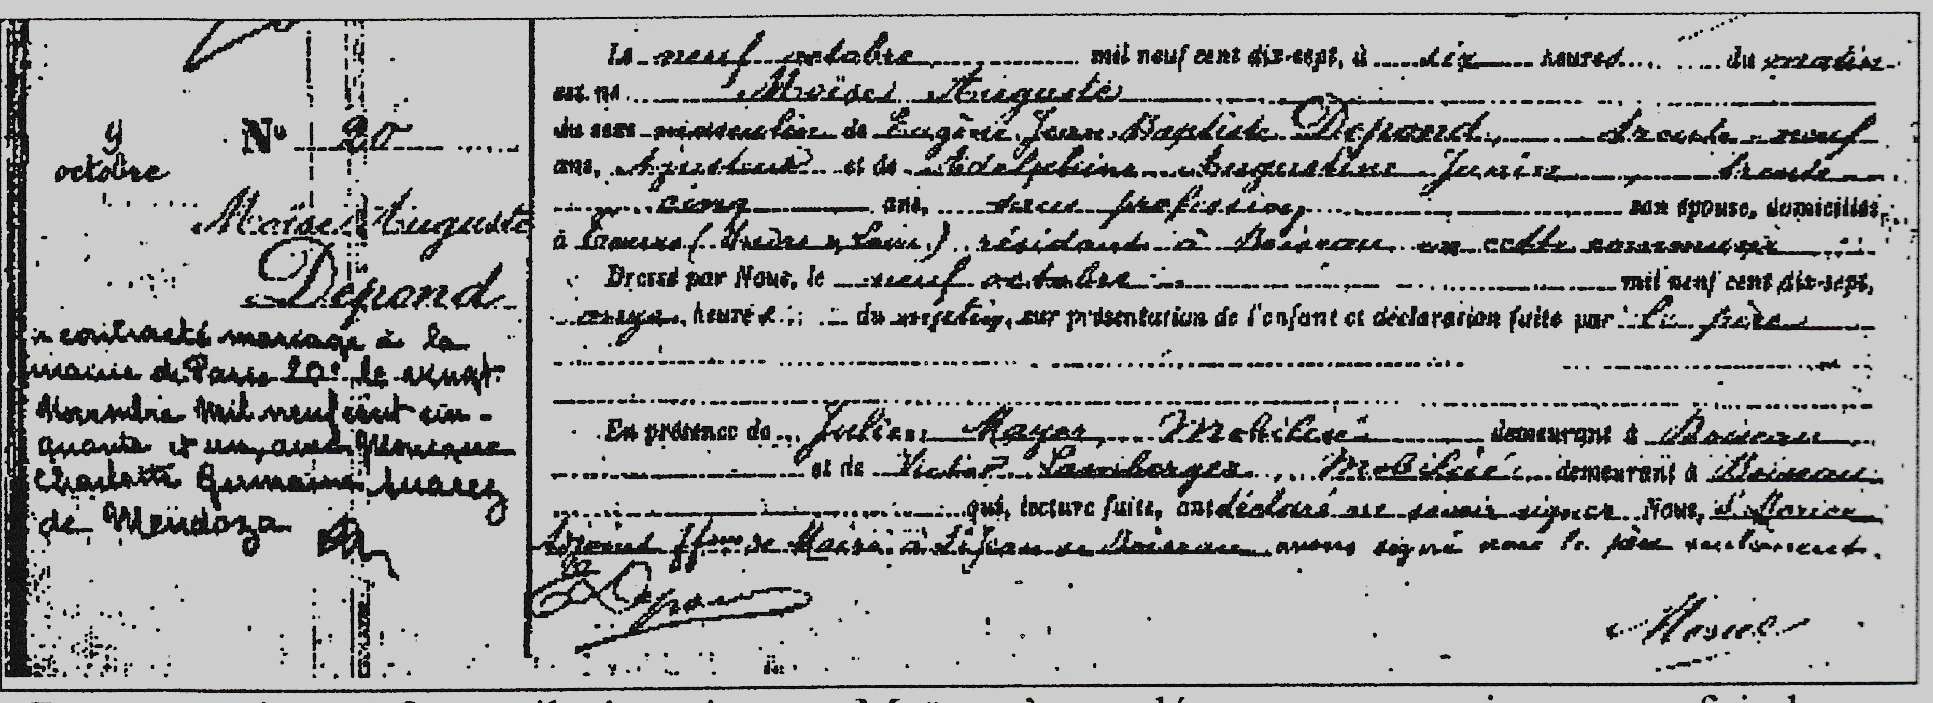 9
octobre
Nº 20
Moïse Auguste
Dépond
a contracté mariage à la
mairie de Paris 20e le vingt
Novembre Mil neuf cent cin-
quante et un, avec Monique
Charlotte Germaine Suarez
de Mendoza
Le neuf octobre mil neuf cent dix-sept, à dix heures du matin
est né Moïse Auguste
du sexe masculin de Eugène Jean Baptiste Dépond, trente neuf
ans, et de Augustine trente
cinq ans, sans profession, son épouse, domiciliés
à ( ) résidant à Boiseau en cette commune
Dressé par Nous, le neuf octobre mil neuf cent dix-sept,
onze heures du matin, sur présentation de l'enfant et déclaration faite par le père
En présence de Julien Mayer, Mobilisé demeurant à Boiseau
et de Victor, Mobilisé demeurant à Boiseau
qui, lecture faite, ont déclaré ne savoir signer Nous,
de à St Jean de Boiseau avons signé avec le père seulement.